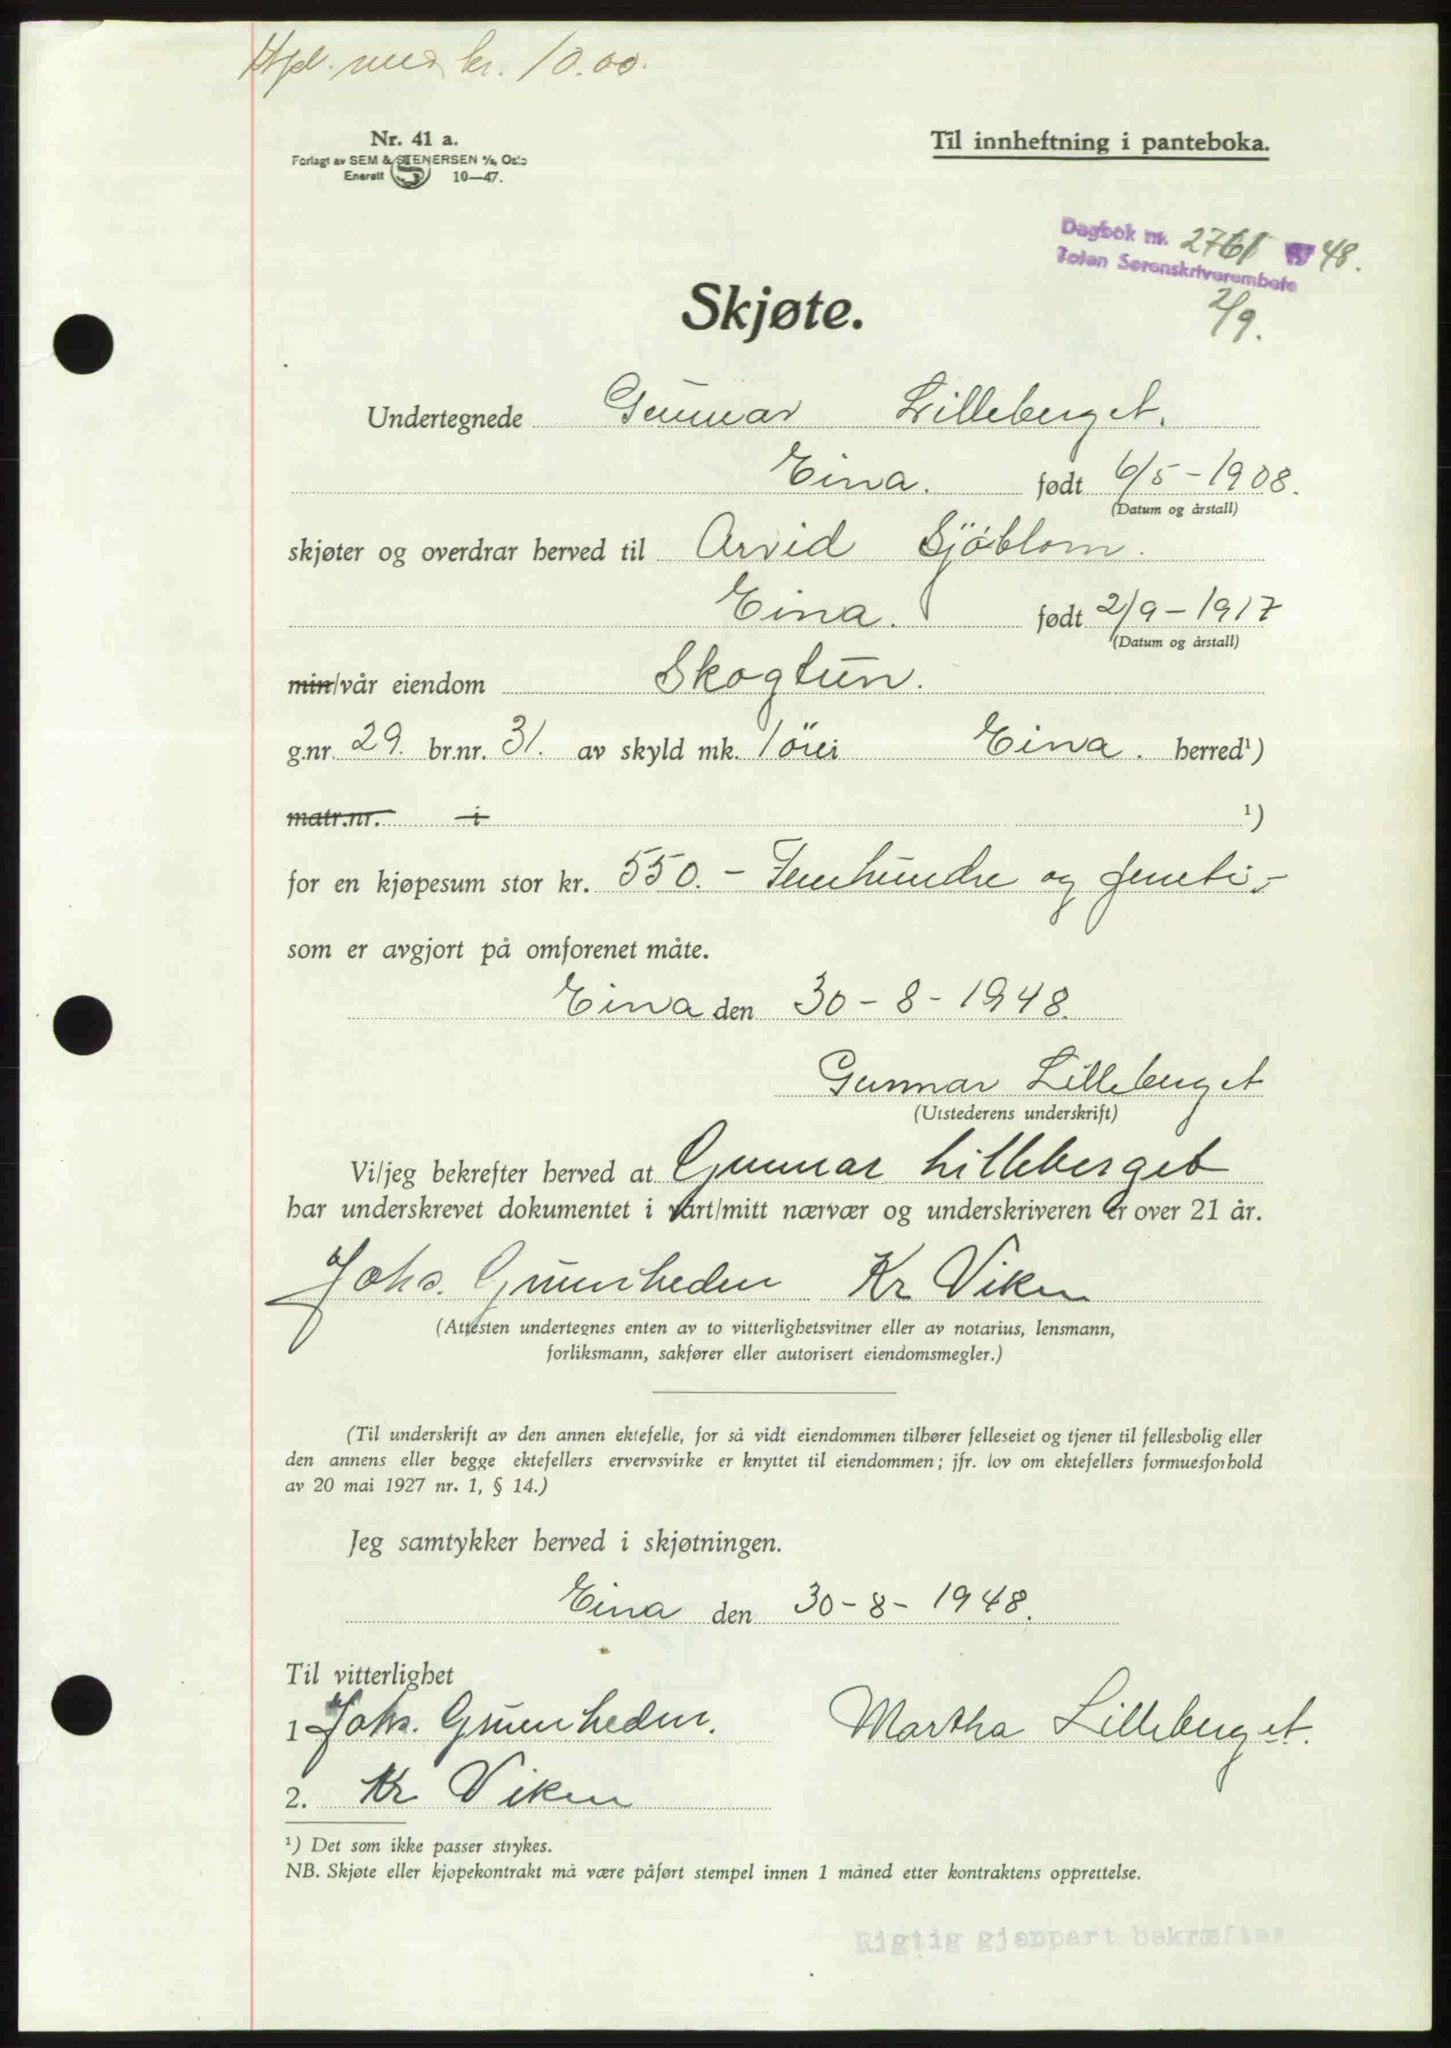 med kr. 10.00.
Nr. 41 a.
Forlagt av SEM & STENERSEN A/S, Oslo
Enerett S 10—47.
Til innheftning i panteboka.
Dagbok nr. 2761 19 48.
Toten Sorenskriverembete
2/9.
Skjøte.
Undertegnede Gunnar Lilleberget.
Eina. født 6/5 - 1908.
(Datum og årstall)
skjøter og overdrar herved til Arvid Sjöblom.
Eina. født 2/9 - 1917
(Datum og årstall)
min/vår eiendom Skogtun.
g.nr. 29. br.nr. 31. av skyld mk. 1 öre i Eina. herred¹)
matr.nr. i ¹)
for en kjøpesum stor kr. 550. - Femhundre og femti.-
som er avgjort på omforenet måte.
Eina den 30 - 8 - 1948.
Gunnar Lilleberget
(Utstederens underskrift)
Vi/jeg bekrefter herved at Gunnar Lilleberget
har underskrevet dokumentet i vårt/mitt nærvær og underskriveren er over 21 år.
Johs. Grønheden Kr Viken
(Attesten undertegnes enten av to vitterlighetsvitner eller av notarius, lensmann,
forliksmann, sakfører eller autorisert eiendomsmegler.)
(Til underskrift av den annen ektefelle, for så vidt eiendommen tilhører felleseiet og tjener til fellesbolig eller
den annens eller begge ektefellers ervervsvirke er knyttet til eiendommen; jfr. lov om ektefellers formuesforhold
av 20 mai 1927 nr. 1, § 14.)
Jeg samtykker herved i skjøtningen.
Eina den 30 - 8 - 1948.
Til vitterlighet
1 Johs. Grønheden. Martha Lilleberget.
2. Kr Viken
¹) Det som ikke passer strykes.
NB. Skjøte eller kjøpekontrakt må være påført stempel innen 1 måned etter kontraktens opprettelse.
Rigtig gjenpart bekræftes